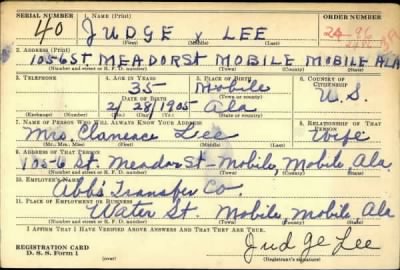 SERIAL NUMBER 1. NAME (Print) ORDER NUMBER
40 JUDGE x LEE
(First) (Middle) (Last)
2. ADDRESS (Print)
1056 ST. MEADOR ST MOBILE MOBILE ALA
(Number and street or R. F. D. number) (Town) (County) (State)
3. TELEPHONE 4. AGE IN YEARS 5. PLACE OF BIRTH 6. COUNTRY OF CITIZENSHIP
35 Mobile U.S.
DATE OF BIRTH (Town or county)
2/28/1905 Ala
(Exchange) (Number) (Mo.) (Day) (Yr.) (State or country)
7. NAME OF PERSON WHO WILL ALWAYS KNOW YOUR ADDRESS 8. RELATIONSHIP OF THAT PERSON
Mrs. Clarence Lee Wife
(Mr., Mrs., Miss) (First) (Middle) (Last)
9. ADDRESS OF THAT PERSON
105-6 St. Meador St-Mobile, Mobile Ala.
(Number and street or R. F. D. number) (Town) (County) (State)
10. EMPLOYER'S NAME
Abbs Transfer Co.
11. PLACE OF EMPLOYMENT OR BUSINESS
Water St. Mobile, Mobile Ala
(Number and street or R. F. D. number) (Town) (County) (State)
I AFFIRM THAT I HAVE VERIFIED ABOVE ANSWERS AND THAT THEY ARE TRUE.
REGISTRATION CARD
D. S. S. Form 1 (over) Judge Lee
(Registrant's signature)